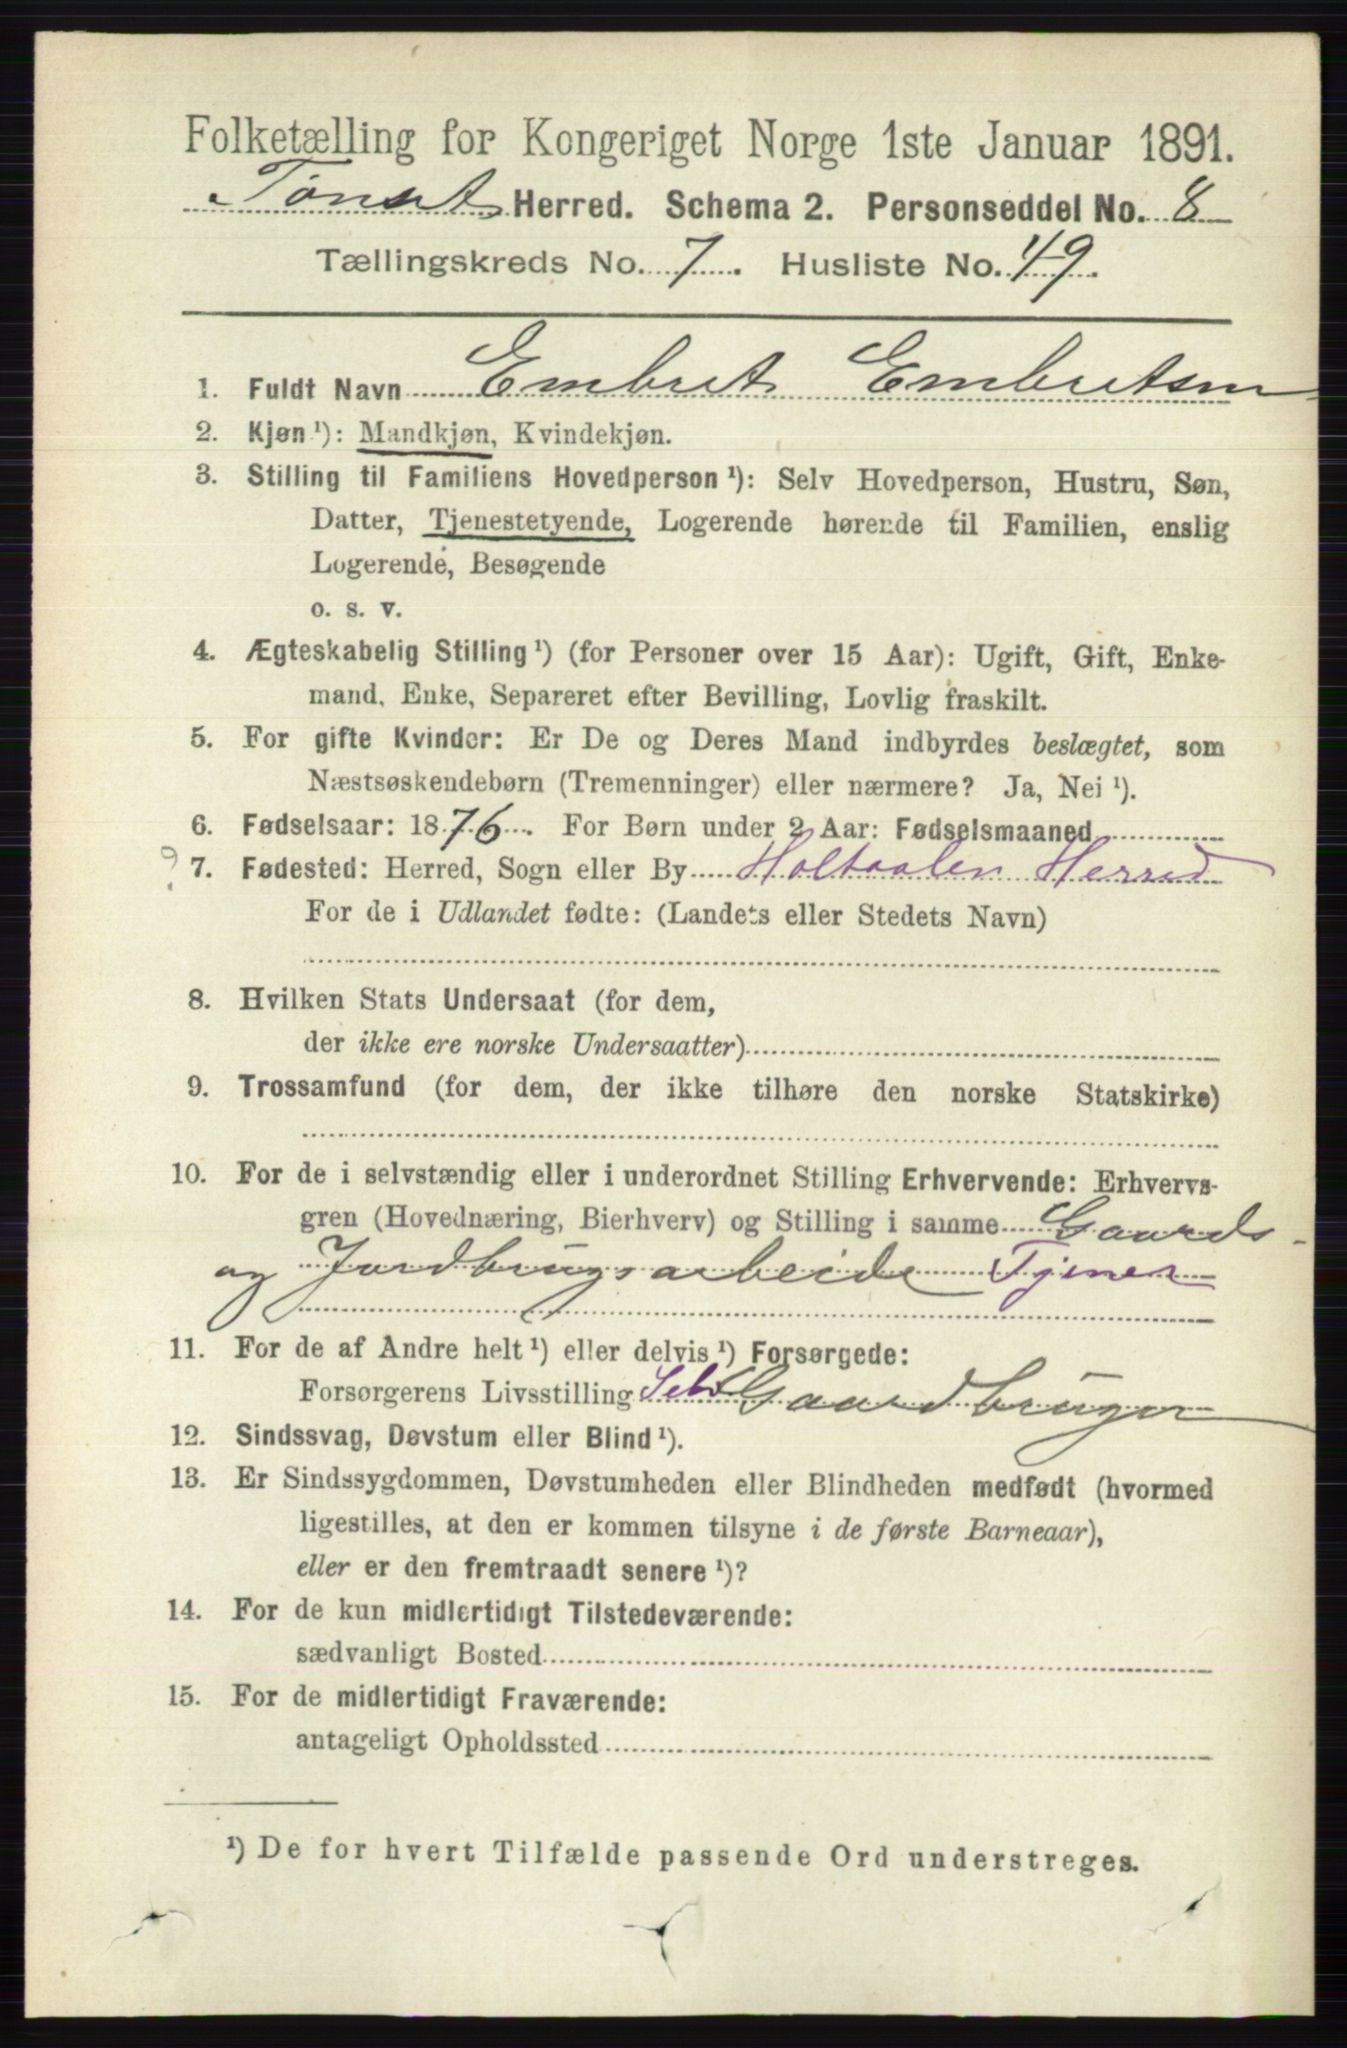 Folketælling for Kongeriget Norge 1ste Januar 1891.
Tønset Herred. Schema 2. Personseddel No. 8
Tællingskreds No. 7. Husliste No. 49.
1. Fuldt Navn Embret Embretsen
2. Kjøn ¹): Mandkjøn, Kvindekjøn.
3. Stilling til Familiens Hovedperson ¹): Selv Hovedperson, Hustru, Søn,
Datter, Tjenestetyende, Logerende hørende til Familien, enslig
Logerende, Besøgende
o. s. v.
4. Ægteskabelig Stilling ¹) (for Personer over 15 Aar): Ugift, Gift, Enke-
mand, Enke, Separeret efter Bevilling, Lovlig fraskilt.
5. For gifte Kvinder: Er De og Deres Mand indbyrdes beslægtet, som
Næstsøskendebørn (Tremenninger) eller nærmere? Ja, Nei ¹).
6. Fødselsaar: 1876. For Børn under 2 Aar: Fødselsmaaned
? 7. Fødested: Herred, Sogn eller By Holtaalen Herred
For de i Udlandet fødte: (Landets eller Stedets Navn)
8. Hvilken Stats Undersaat (for dem,
der ikke ere norske Undersaatter)
9. Trossamfund (for dem, der ikke tilhøre den norske Statskirke)
10. For de i selvstændig eller i underordnet Stilling Erhvervende: Erhvervs-
gren (Hovednæring, Bierhverv) og Stilling i samme Gaards-
og Jordbrugsarbeide Tjener
11. For de af Andre helt ¹) eller delvis ¹) Forsørgede:
Forsørgerens Livsstilling Selv Gaardbruger
12. Sindssvag, Døvstum eller Blind ¹).
13. Er Sindssygdommen, Døvstumheden eller Blindheden medfødt (hvormed
ligestilles, at den er kommen tilsyne i de første Barneaar),
eller er den fremtraadt senere ¹)?
14. For de kun midlertidigt Tilstedeværende:
sædvanligt Bosted
15. For de midlertidigt Fraværende:
antageligt Opholdssted
¹) De for hvert Tilfælde passende Ord understreges.